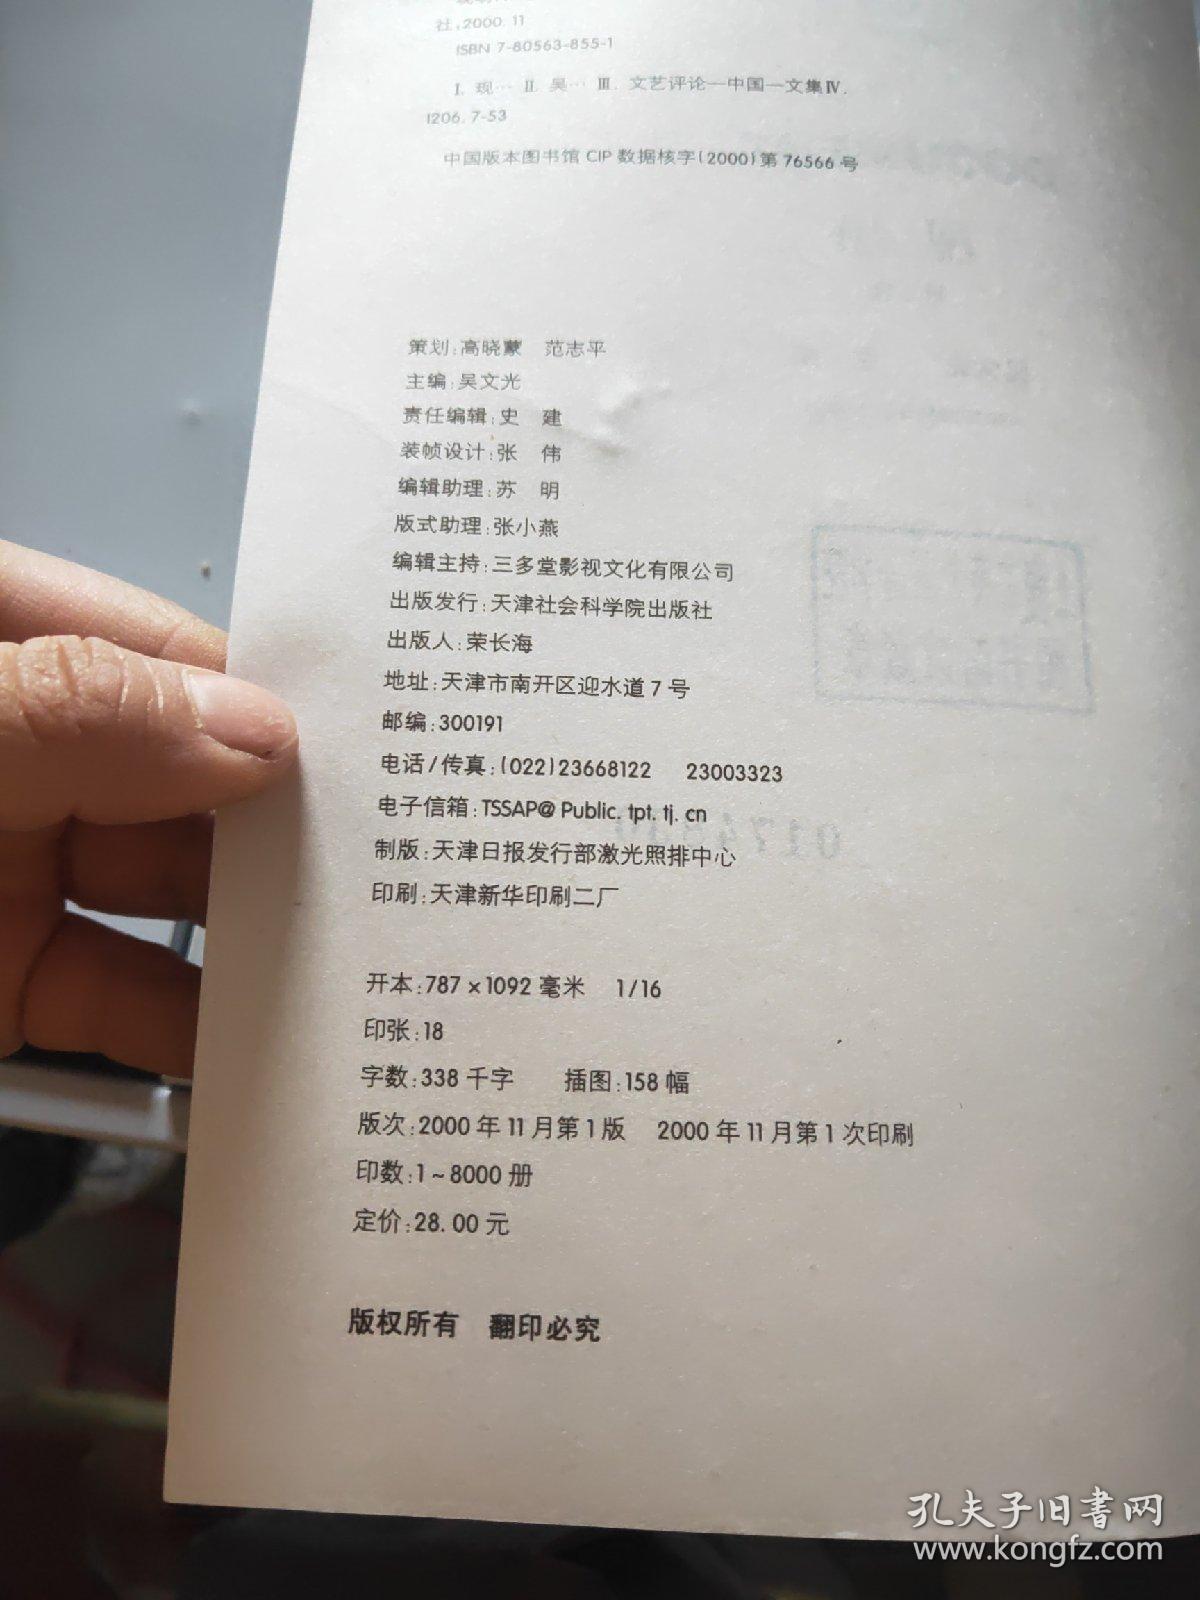 社,2000.11
ISBN 7-80563-855-1
Ⅰ.现… Ⅱ.吴… Ⅲ.文艺评论—中国—文集Ⅳ.
I206.7-53
中国版本图书馆CIP数据核字(2000)第76566号
策划:高晓蒙 范志平
主编:吴文光
责任编辑:史 建
装帧设计:张 伟
编辑助理:苏 明
版式助理:张小燕
编辑主持:三多堂影视文化有限公司
出版发行:天津社会科学院出版社
出版人:荣长海
地址:天津市南开区迎水道7号
邮编:300191
电话/传真:(022)23668122 23003323
电子信箱:TSSAP@Public.tpt.tj.cn
制版:天津日报发行部激光照排中心
印刷:天津新华印刷二厂
开本:787×1092毫米 1/16
印张:18
字数:338千字 插图:158幅
版次:2000年11月第1版 2000年11月第1次印刷
印数:1~8000册
定价:28.00元
版权所有 翻印必究
孔夫子旧书网
www.kongfz.com